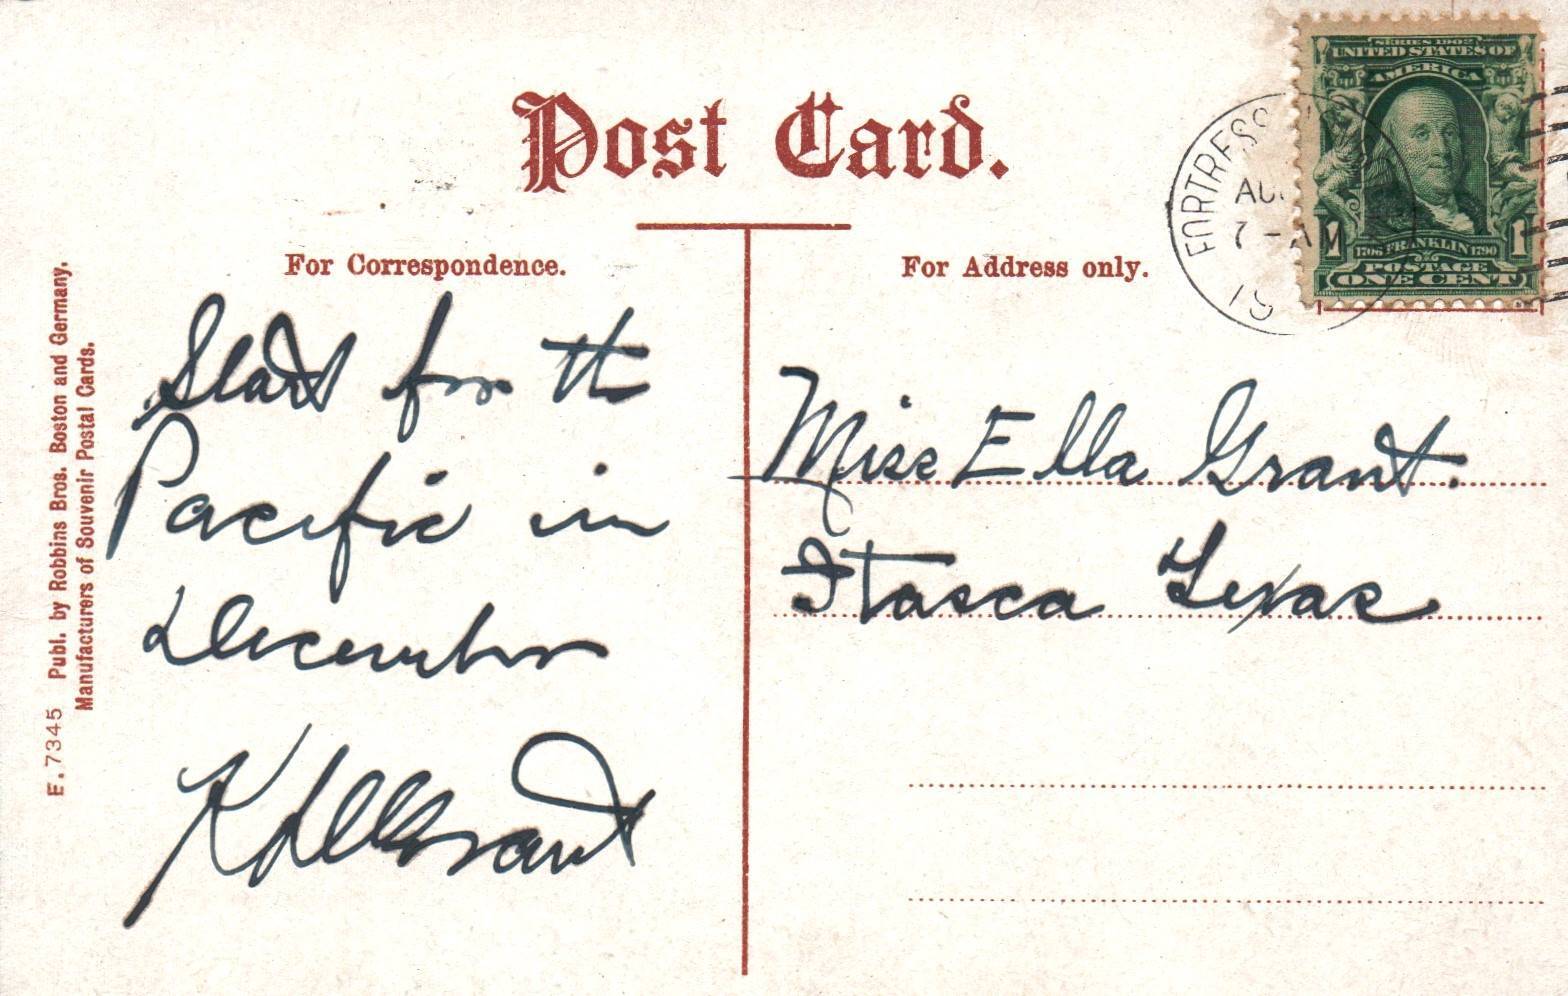 Post Card.
For Correspondence.
For Address only.
Start for the
Pacific in
December
Grant
Miss Ella Grant.
Itasca Texas
E. 7345 Publ. by Robbins Bros. Boston and Germany.
Manufacturers of Souvenir Postal Cards.
SERIES 1902
UNITED STATES OF
AMERICA
FRANKLIN
POSTAGE
1 ONE CENT 1
FORTRESS
7-A